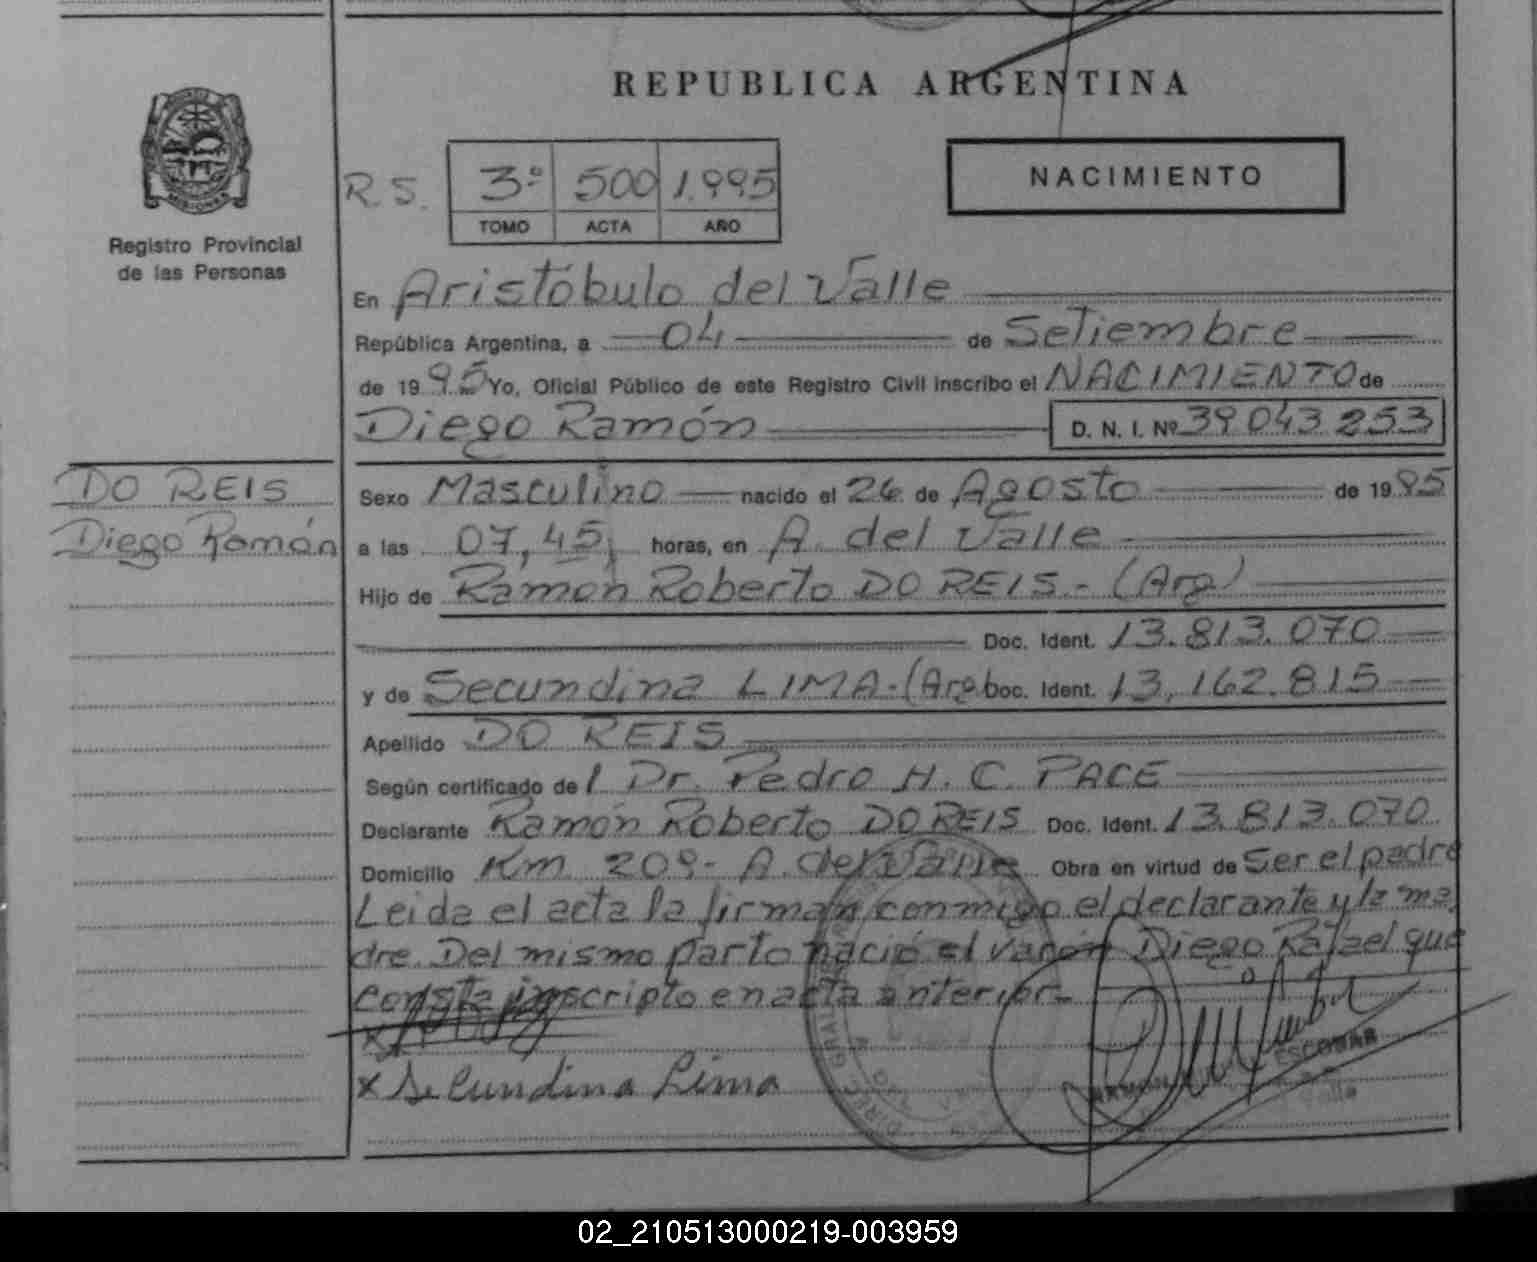 REPUBLICA ARGENTINA
MISIONES
Registro Provincial
de las Personas
NACIMIENTO
R.S. 3º 500 1.995
TOMO ACTA AÑO
En Aristóbulo del Valle
República Argentina, a 04 de Setiembre
de 1995 Yo, Oficial Público de este Registro Civil inscribo el NACIMIENTO de
Diego Ramón D. N. I. Nº 39 043 253
DO REIS
Diego Ramón
Sexo Masculino nacido el 26 de Agosto de 1995
a las 07,45, horas, en A. del Valle
Hijo de Ramón Roberto DO REIS.- (Arg)
Doc. Ident. 13.813.070
y de Secundina LIMA.-(Arg Doc. Ident. 13,162.815
Apellido DO REIS
Según certificado del Dr. Pedro H. C. PACE
Declarante Ramón Roberto DO REIS Doc. Ident. 13.813.070
Domicilio Km 209- A. del Valle Obra en virtud de Ser el padre
Leida el acta la firman conmigo el declarante y la ma
dre. Del mismo parto nació el varón Diego Rafael que
consta inscripto en acta anterior.-
x
x Secundina Lima
ESCOBAR
Valle
02_210513000219-003959